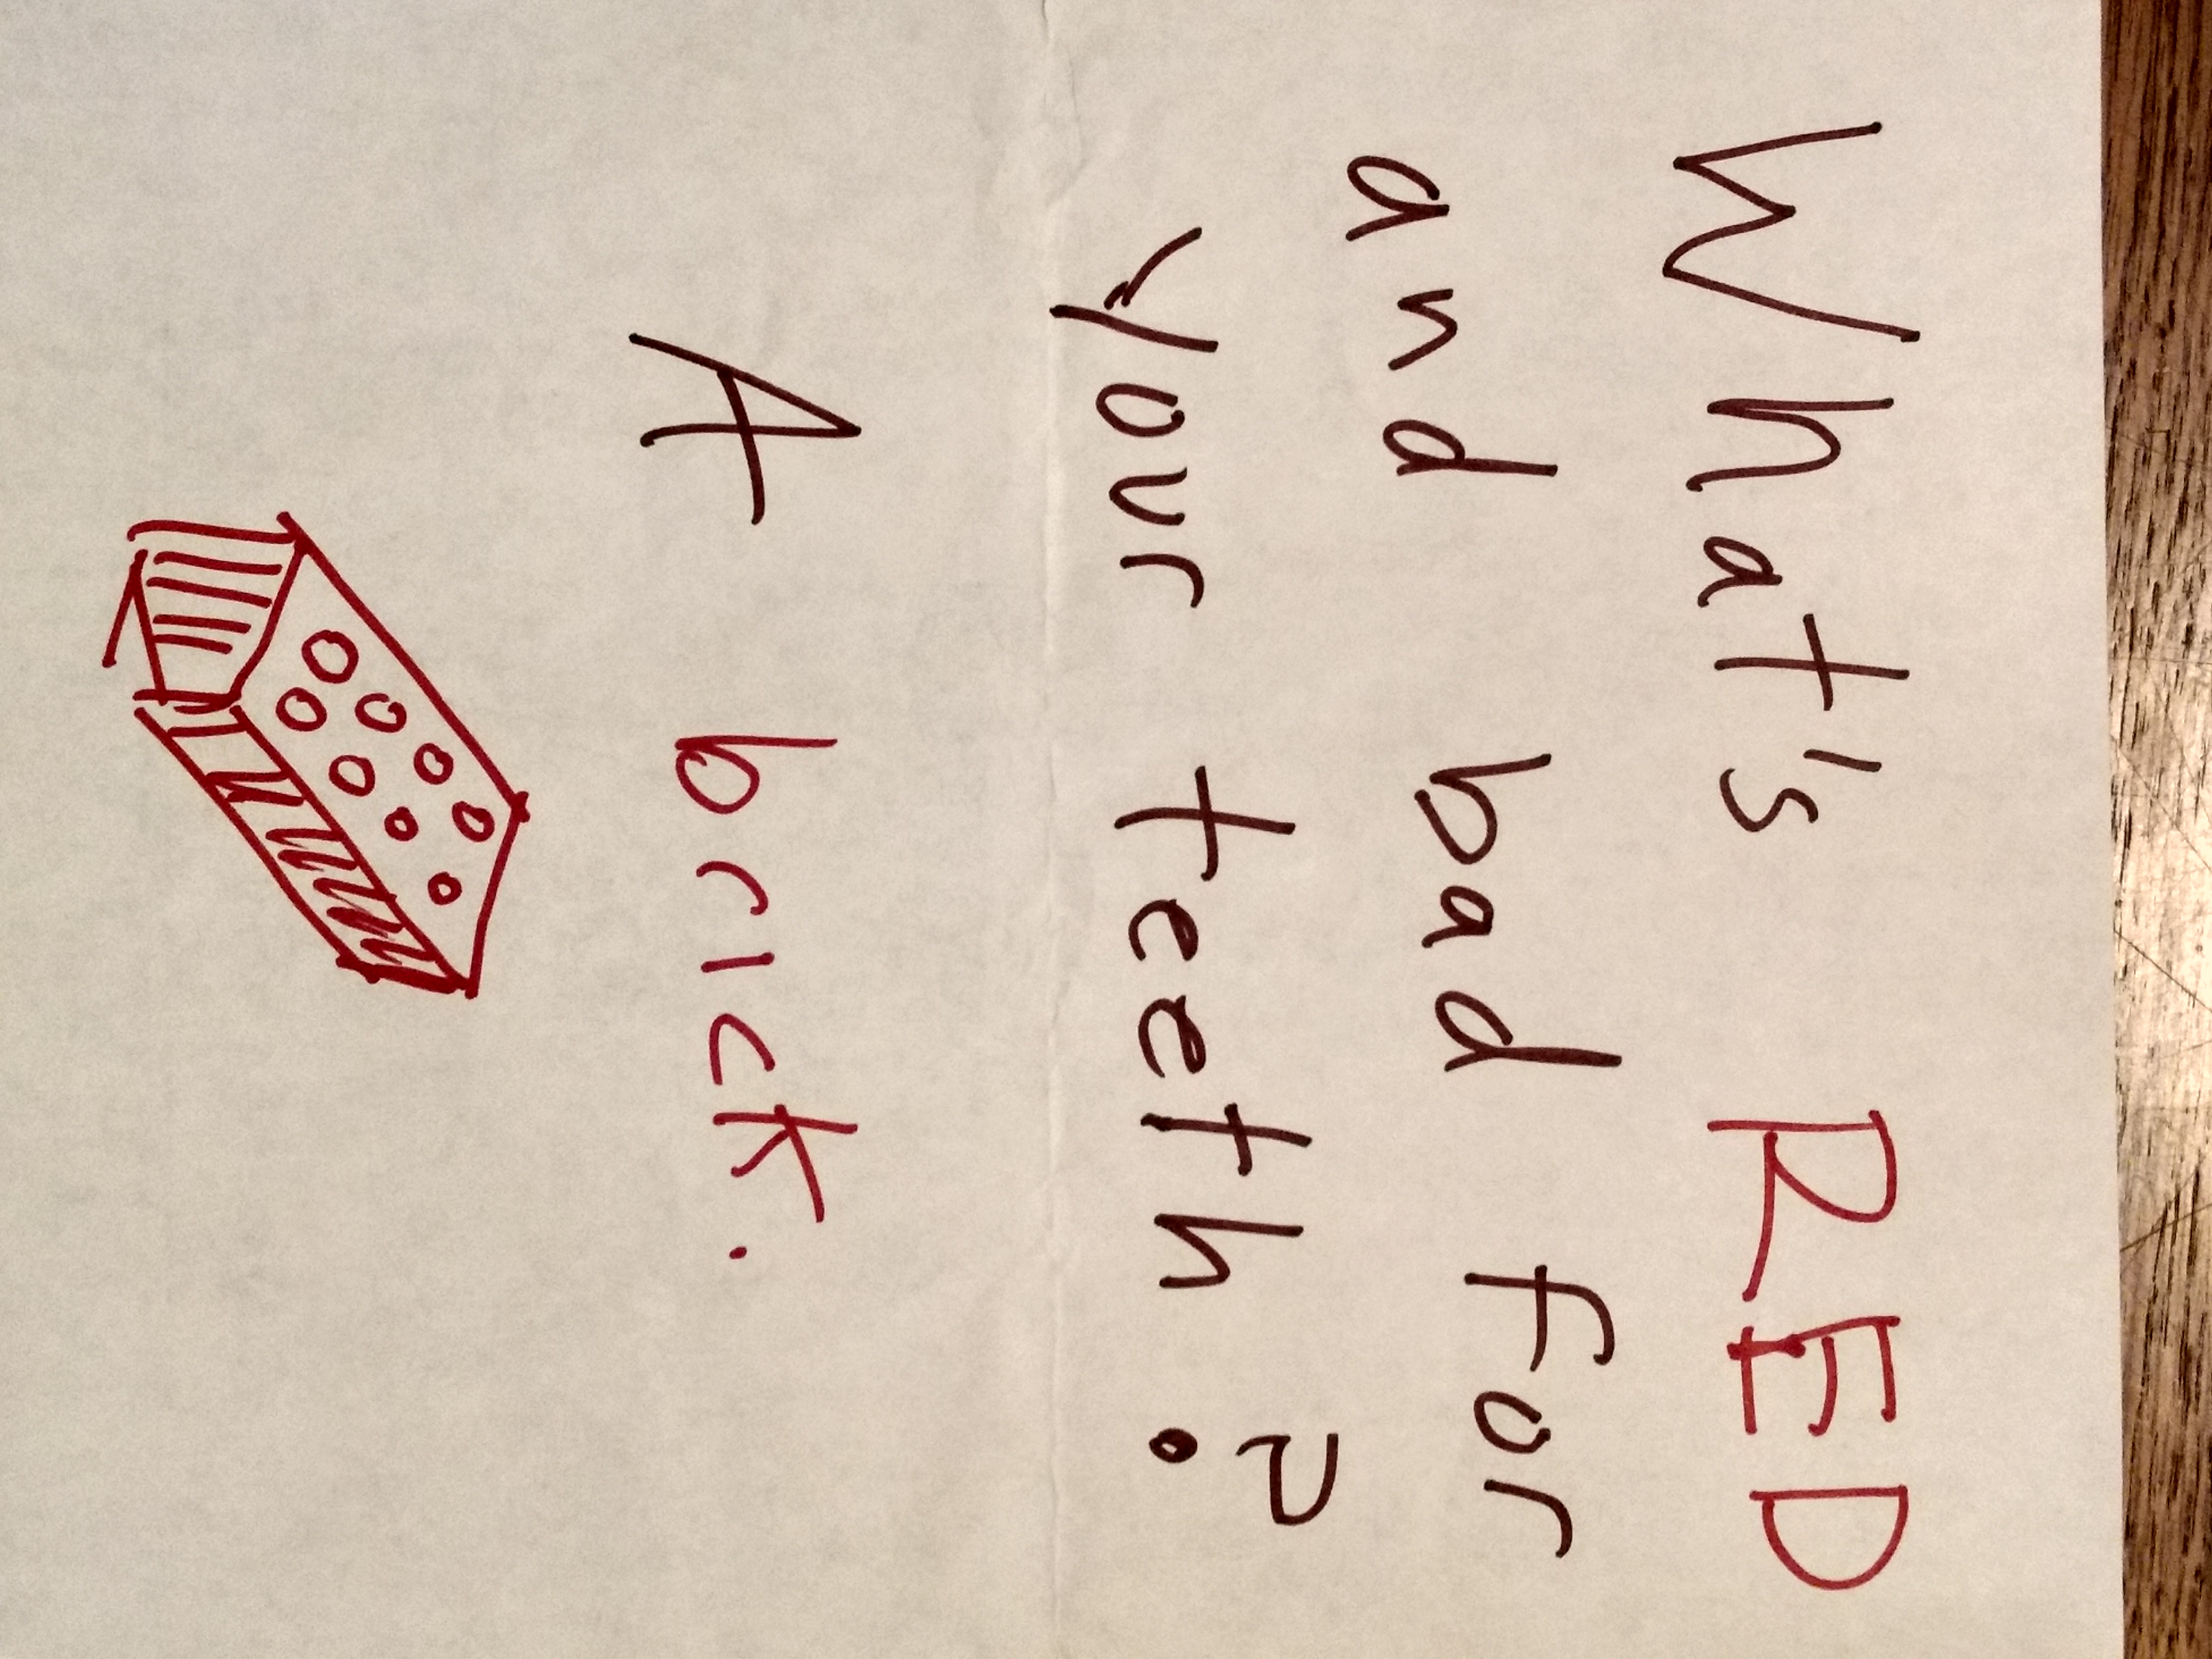 What's RED
and bad for
your teeth?
A brick.